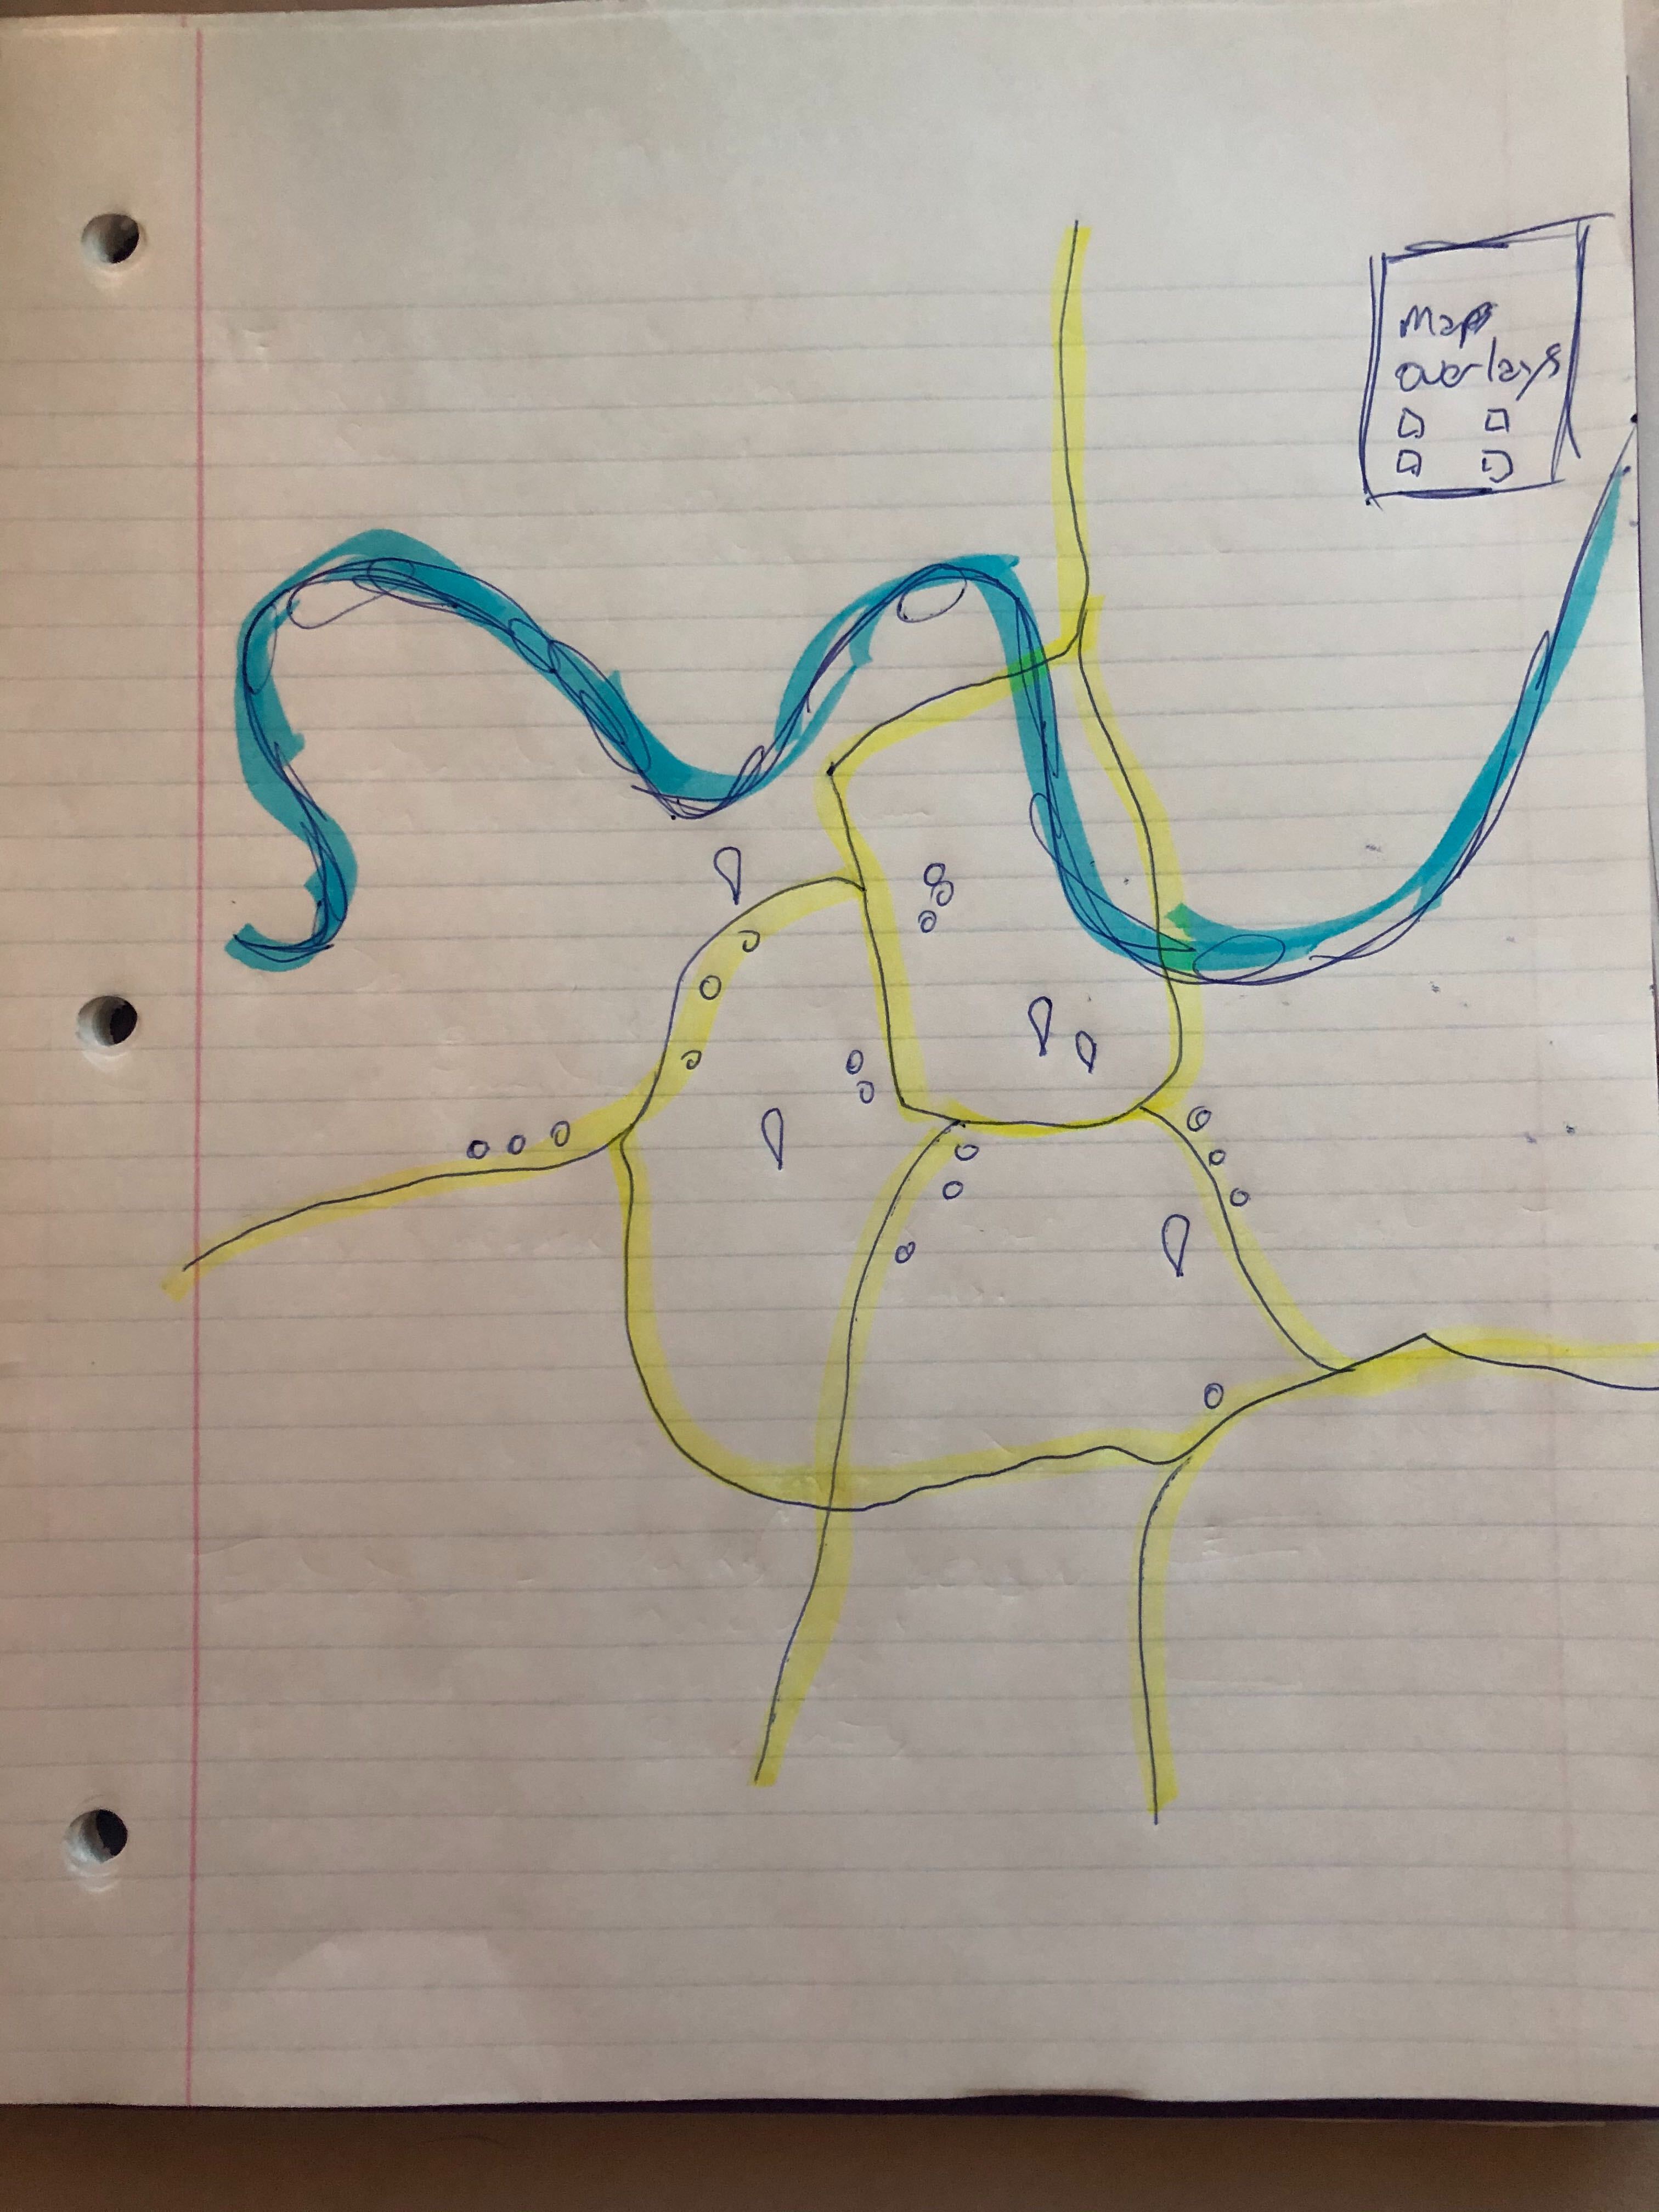 Map
overlays